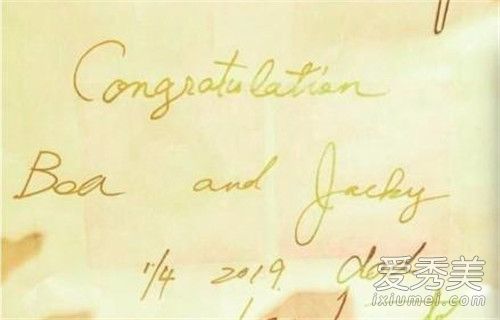 Congratulation
Boa and Jacky
1/4 2019 dad
爱秀美
ixiumei.com